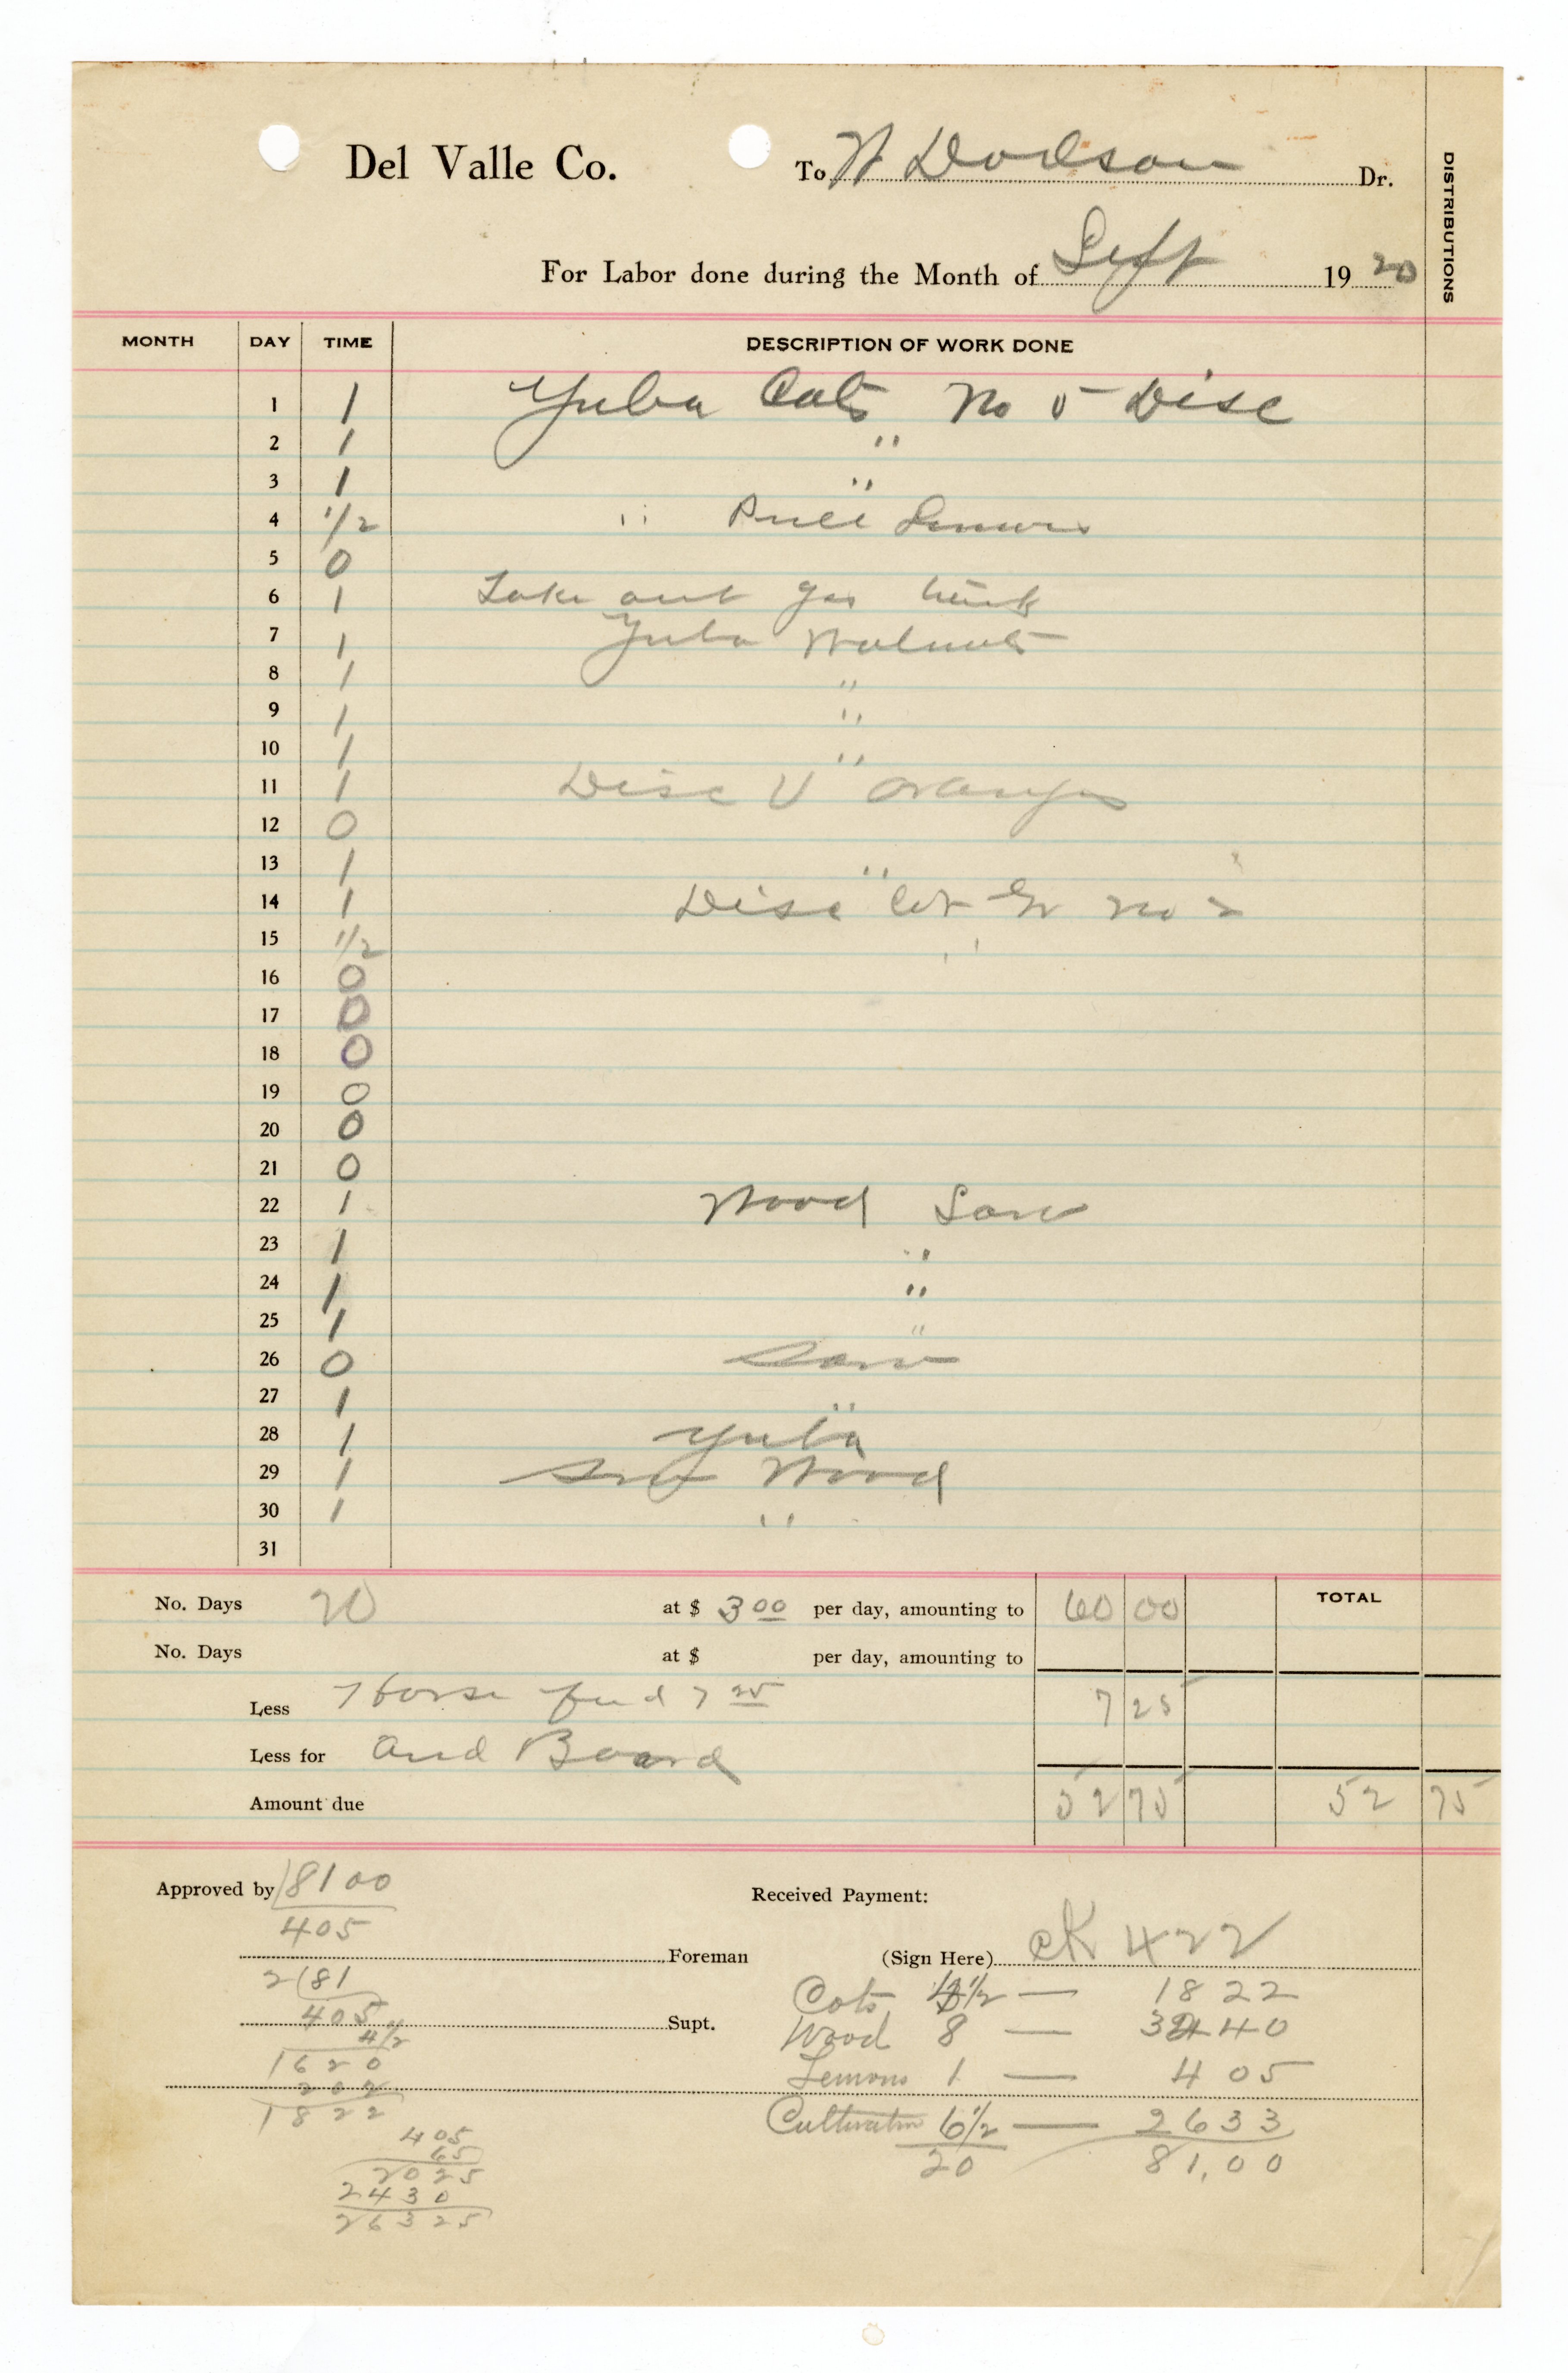 Del Valle Co. To W Dodson Dr.
DISTRIBUTIONS
For Labor done during the Month of Sept 1920
MONTH DAY TIME DESCRIPTION OF WORK DONE
1 1 Yuba Cots No 5 Disc
2 1 "
3 1 "
4 1/2 " Pull Lemons
5 0
6 1 Take out gas tank
7 1 Yuba Walnuts
8 1 "
9 1 "
10 1 "
11 1 Disc V Oranges
12 0
13 1 "
14 1 Disc Cot Gr No 2
15 1/2 "
16 0
17 0
18 0
19 0
20 0
21 0
22 1 Wood Saw
23 1 "
24 1 "
25 1 "
26 0 Saw
27 1 "
28 1 Yuba
29 1 Saw Wood
30 1 "
31
No. Days 20 at $ 3 00 per day, amounting to 60 00 TOTAL
No. Days at $ per day, amounting to
Less Horse feed 7 25 7 25
Less for and Board
Amount due 52 75 52 75
Approved by 8100 Received Payment:
405
Foreman (Sign Here) CK 422
2(81 Cots 4 1/2 — 18 22
405 Supt. Wood 8 — 32 40
4 1/2
1620 Lemons 1 — 4 05
202
1822 Cultivation 6 1/2 — 26 33
405 20 81,00
65
2025
2430
26325